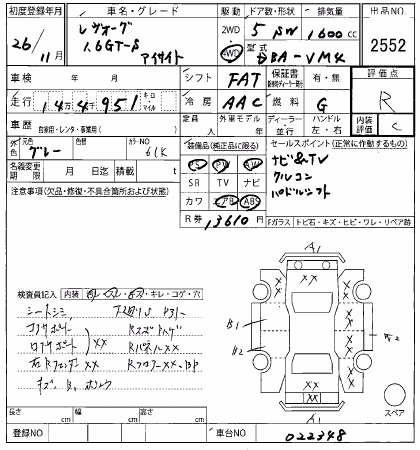 初度登録年月 車名・グレード 駆動 ドア数・形状 排気量 出品NO
26/11月 レヴォーグ 1.6GT-S アイサイト 2WD 4WD 5 SW 1600cc 2552
型式 DBA-VM4
車検 年 月 シフト FAT 保証書 有・無 評価点
走行 144951 キロ マイル 冷房 AAC 燃料 G R
車歴 自家用・レンタ・事業用( ) 定員 人 外車モデル 年 ディーラー 並行 ハンドル 左・右 内装評価 C
外色 元色 グレー 色替 カラーNO 61K
装備品(純正品に限る) セールスポイント(正常に作動するもの)
PS PW SR TV ナビ カワ エアB ABS
ナビ&TV
クルコン
パドルシフト
名義変更期限 月 日迄 積載 t
R券 13610円
注意事項(欠品・修復・不具合箇所および状態)
Fガラス トビ石・キズ・ヒビ・ワレ・リペア跡
A1
XX
B1
B2
A1
スペア
検査員記入 内装 キレ・コゲ・穴
シートシミ
コアサポート
ロアサポート XX
右Rフェンダー XX
Rパネル XX
Rフロアー XX
長さ cm 幅 cm 高さ cm
登録NO 車台NO 022348